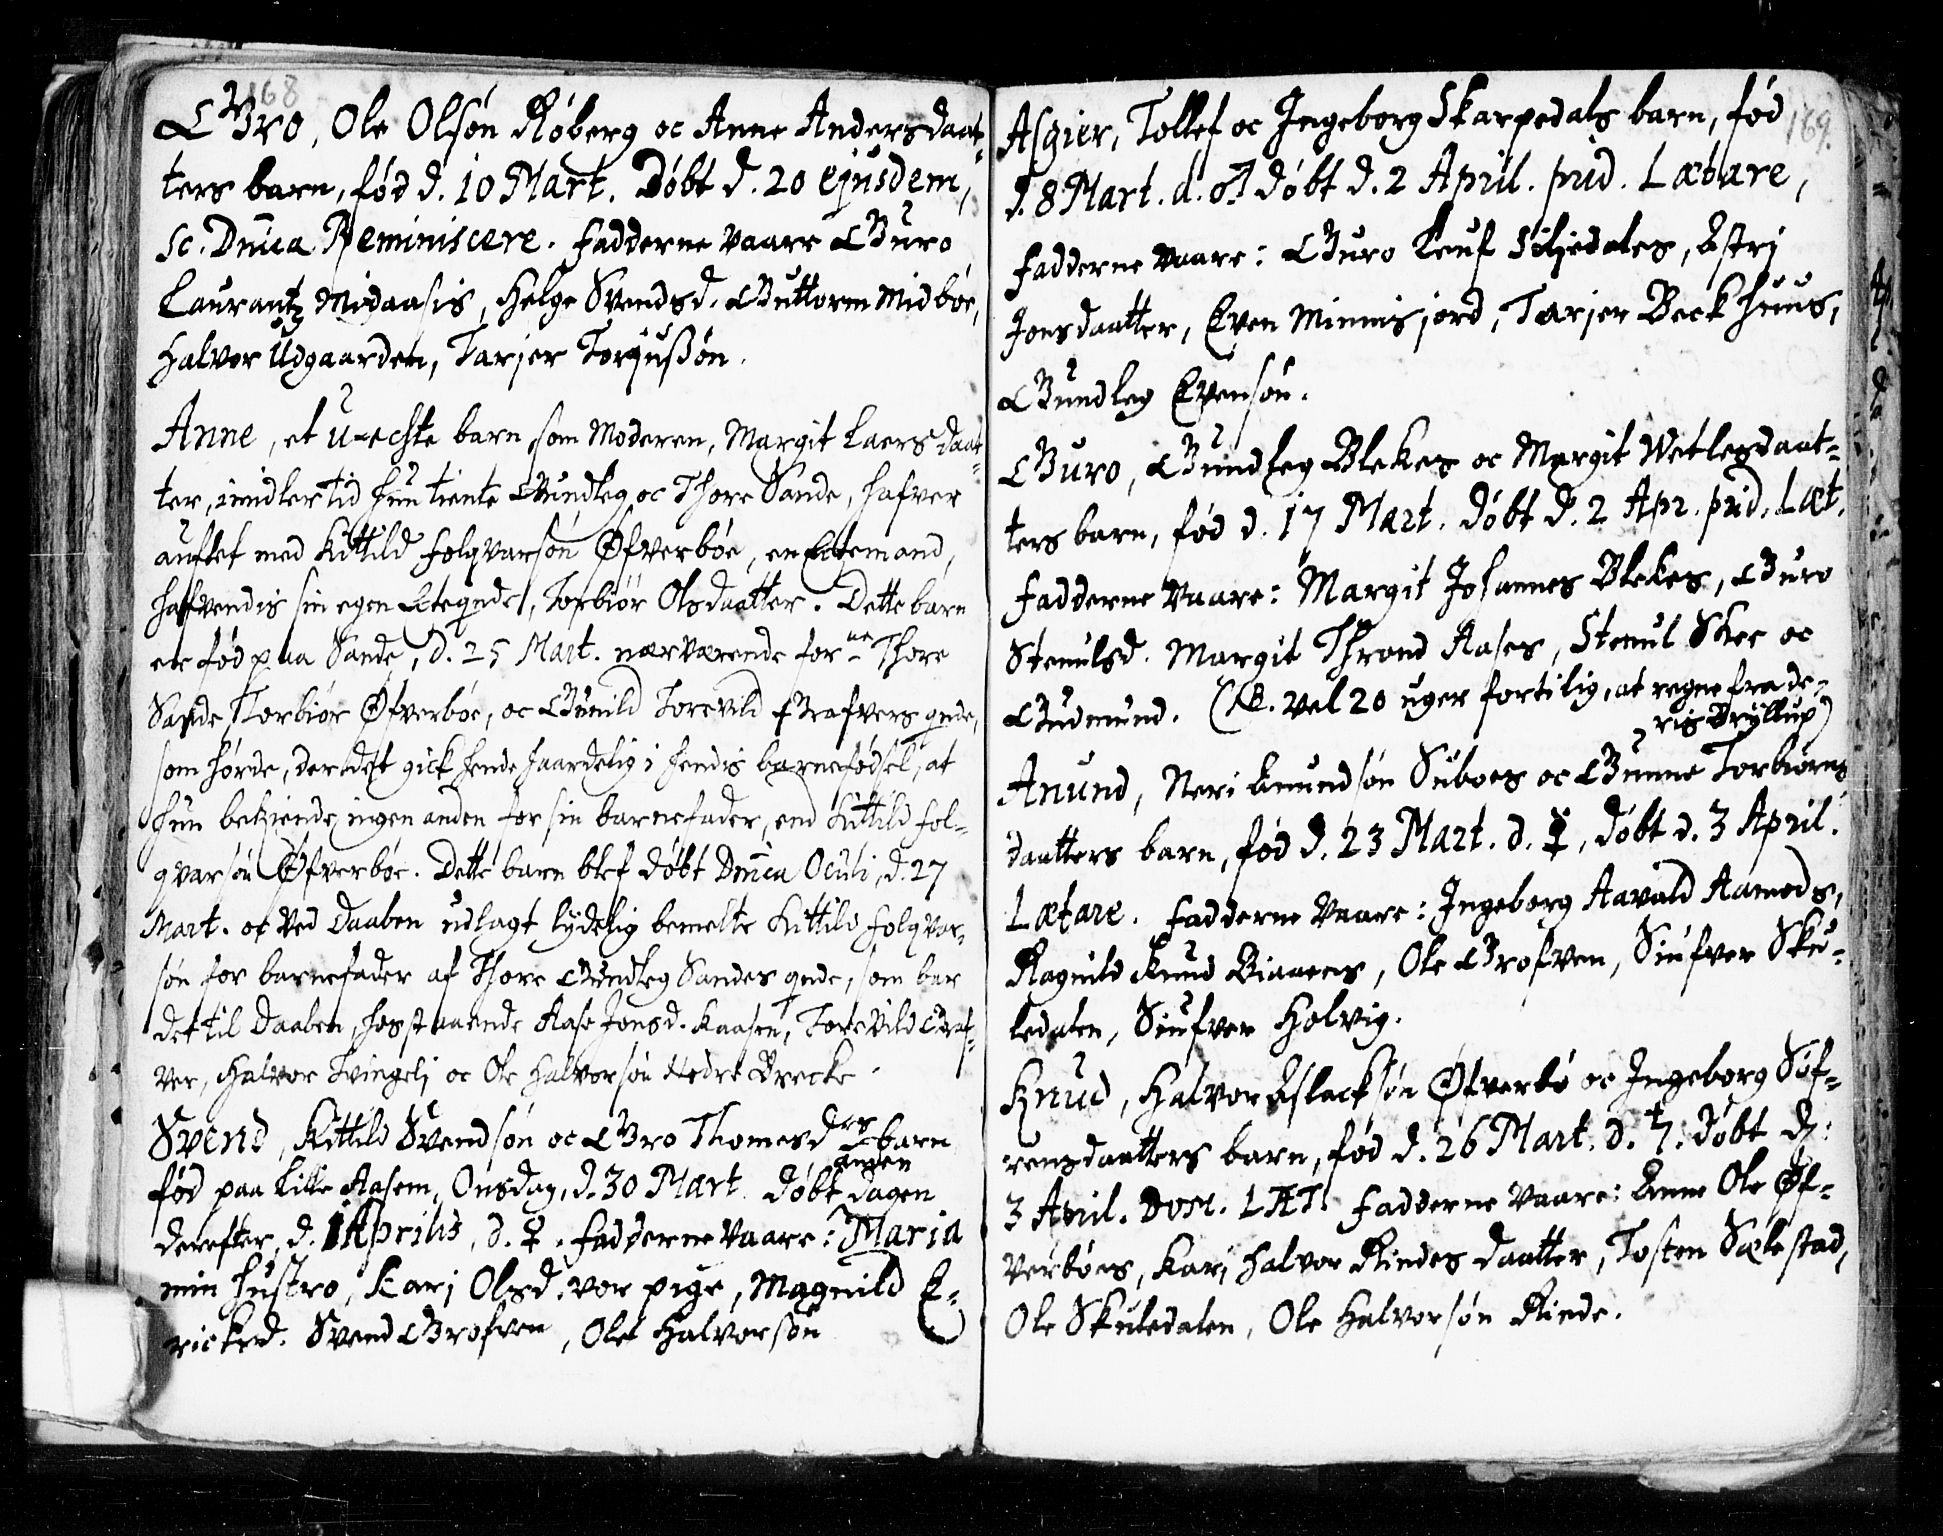 168
Gro, Ole Olsøn Røberg oc Anne Andersdaat-
ters barn, fød d. 10 Mart. Døbt d. 20 ejusdem,
sc. Dnica Reminiscere. Fadderne vaare Guro
Laurantz Midaasis, Helge Svendsd. Guttorm Midbøe,
Halvor Udgaarden, Tarjer Torjusßøn.
Anne, et u-echte barn, som Moderen, Margit Laersdaat-
ter, imidlertid hun tiente Gundleg oc Thore Sande, hafver
auflet med Kittild Folqvarsøn Øfverbøe, en Ectemand,
hafvendis sin egen Ectegvinde, Torbiør Olsdaatter. Dette barn
ere fød paa Sande, d. 25 Mart. nærværende forne Thore
Sande, Torbiør Øfverbøe, oc Gunild Torevild Grafvers qvde,
som hørde, der det gick hende haardelig i hendis barnefødsel, at
hun bekiende ingen anden for sin barnefader, end Kittild Fol-
qvarsøn Øfverbøe. Dette barn blef døbt Dnica Oculi, d. 27
Mart. oc ved Daaben udlagt lydelig bemelte Kittild Folqvar-
søn for barnefader af Thore Gundleg Sandes qvde, som bar
det til Daaben, hosstaaende Aase Jonsd. Kaasen, Torevild Graf-
ver, Halvor Tvingelj oc Ole Halvorsøn Nedre Brecke.
Svend, Kittild Svendsøn oc Gro Thomesdrs barn
fød paa Lille Aasem, Onsdag, d. 30 Mart. Døbt anden dagen
derefter, d. 1 Aprilis, d. ♀. Fadderne vaare: Maria
min hustro, Karj Olsd. vor pige, Magnild E-
ricksd. Svend Grofven, Ole Halvorsøn
169.
Asgier, Tollef oc Ingeborg Skarpedals barn, fød
d. 8 Mart. d. ♂ døbt d. 2 April. prid. Lætare,
Fadderne vaare: Guro Leuf Siljedales, Astrj
Jonsdaatter, Even Minnisjord, Tarjer Beckhuus,
Gundleg Evensøn.
Guro, Gundleg Blekes oc Margit Wetlesdaat-
ters barn, fød d. 17 Mart. døbt d. 2 Apr. prid. Læt.
Fadderne vaare: Margit Johannes Blekes, Guro
Stenulsd. Margit Thrond Aases, Stenul Skee oc
Gudmund. (NB. vel 20 uger fortilig, at regne fra de-
ris Bryllup)
Anund, Neri Anundsøn Suboes oc Gunne Torbiørns
daatters barn, fød d. 23 Mart. d. ☿, døbt d. 3 April.
Lætare. Fadderne vaare: Ingeborg Aavald Aamods,
Ragnild Knud Biaaens, Ole Grofven, Siufver Sku-
ledalen, Siufver Holvig.
Knud, Halvor Aslacksøn Øfverbø oc Ingeborg Søf-
rensdaatters barn, fød d. 26 Mart. d. ♄. døbt d:
3 April. Dom. LÆT. Fadderne vaare: Anne Ole Øf-
verbøes, Karj Halvor Rindes daatter, Tosten Sælestad,
Ole Skuledalen, Ole Halvorsøn Rinde.